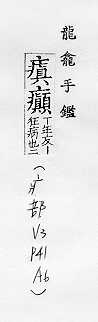 龍龕手鑑
瘨癲丁年反丨
狂病也二
(疒部
V3
P41
A6)